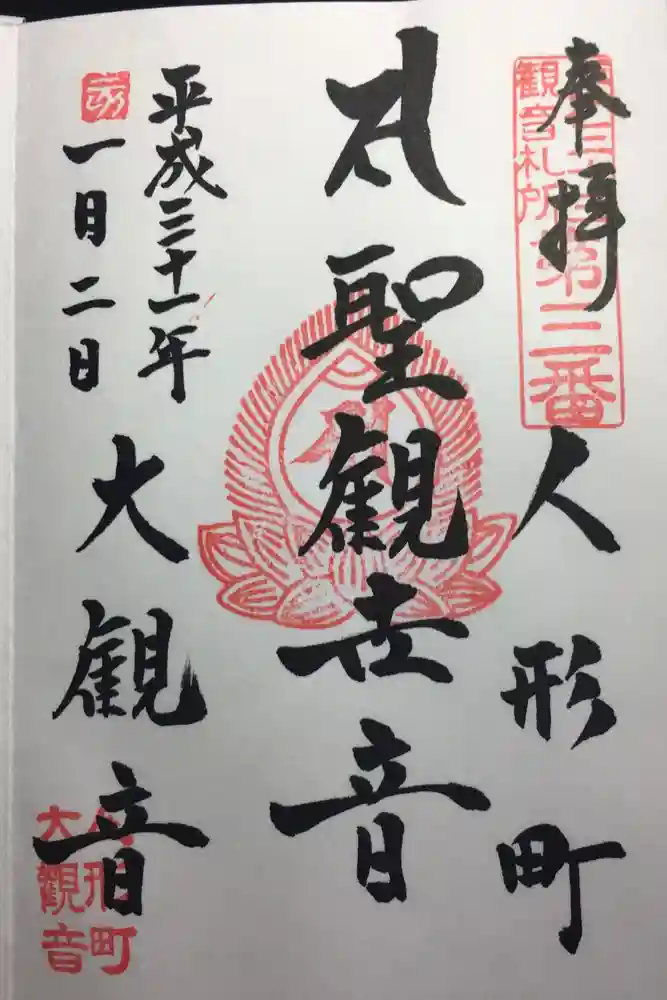 奉拝
第三番
観音札所
人形町
聖観世音
平成三十一年
一月二日
大観音
人形町
大観音